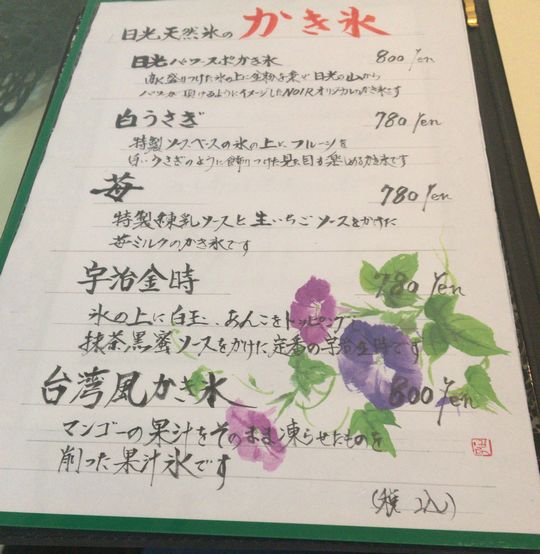 日光天然氷の かき氷
日光パワースポかき氷 800 Yen
高く盛りつけた氷の上に金粉を乗せ 日光の山から
パワーが頂けるようにイメージしたNOIRオリジナルのかき氷です
白うさぎ 780 Yen
特製ソースベースの氷の上に、フルーツを
白いうさぎのように飾りつけた見た目も楽しめるかき氷です
苺 780 Yen
特製練乳ソースと生いちごソースをかけた
苺ミルクのかき氷です
宇治金時 780 Yen
氷の上に白玉、あんこをトッピングし
抹茶黒蜜ソースをかけた定番の宇治金時です
台湾風かき氷 800 Yen
マンゴーの果汁をそのまま凍らせたものを
削った果汁氷です
(税込)